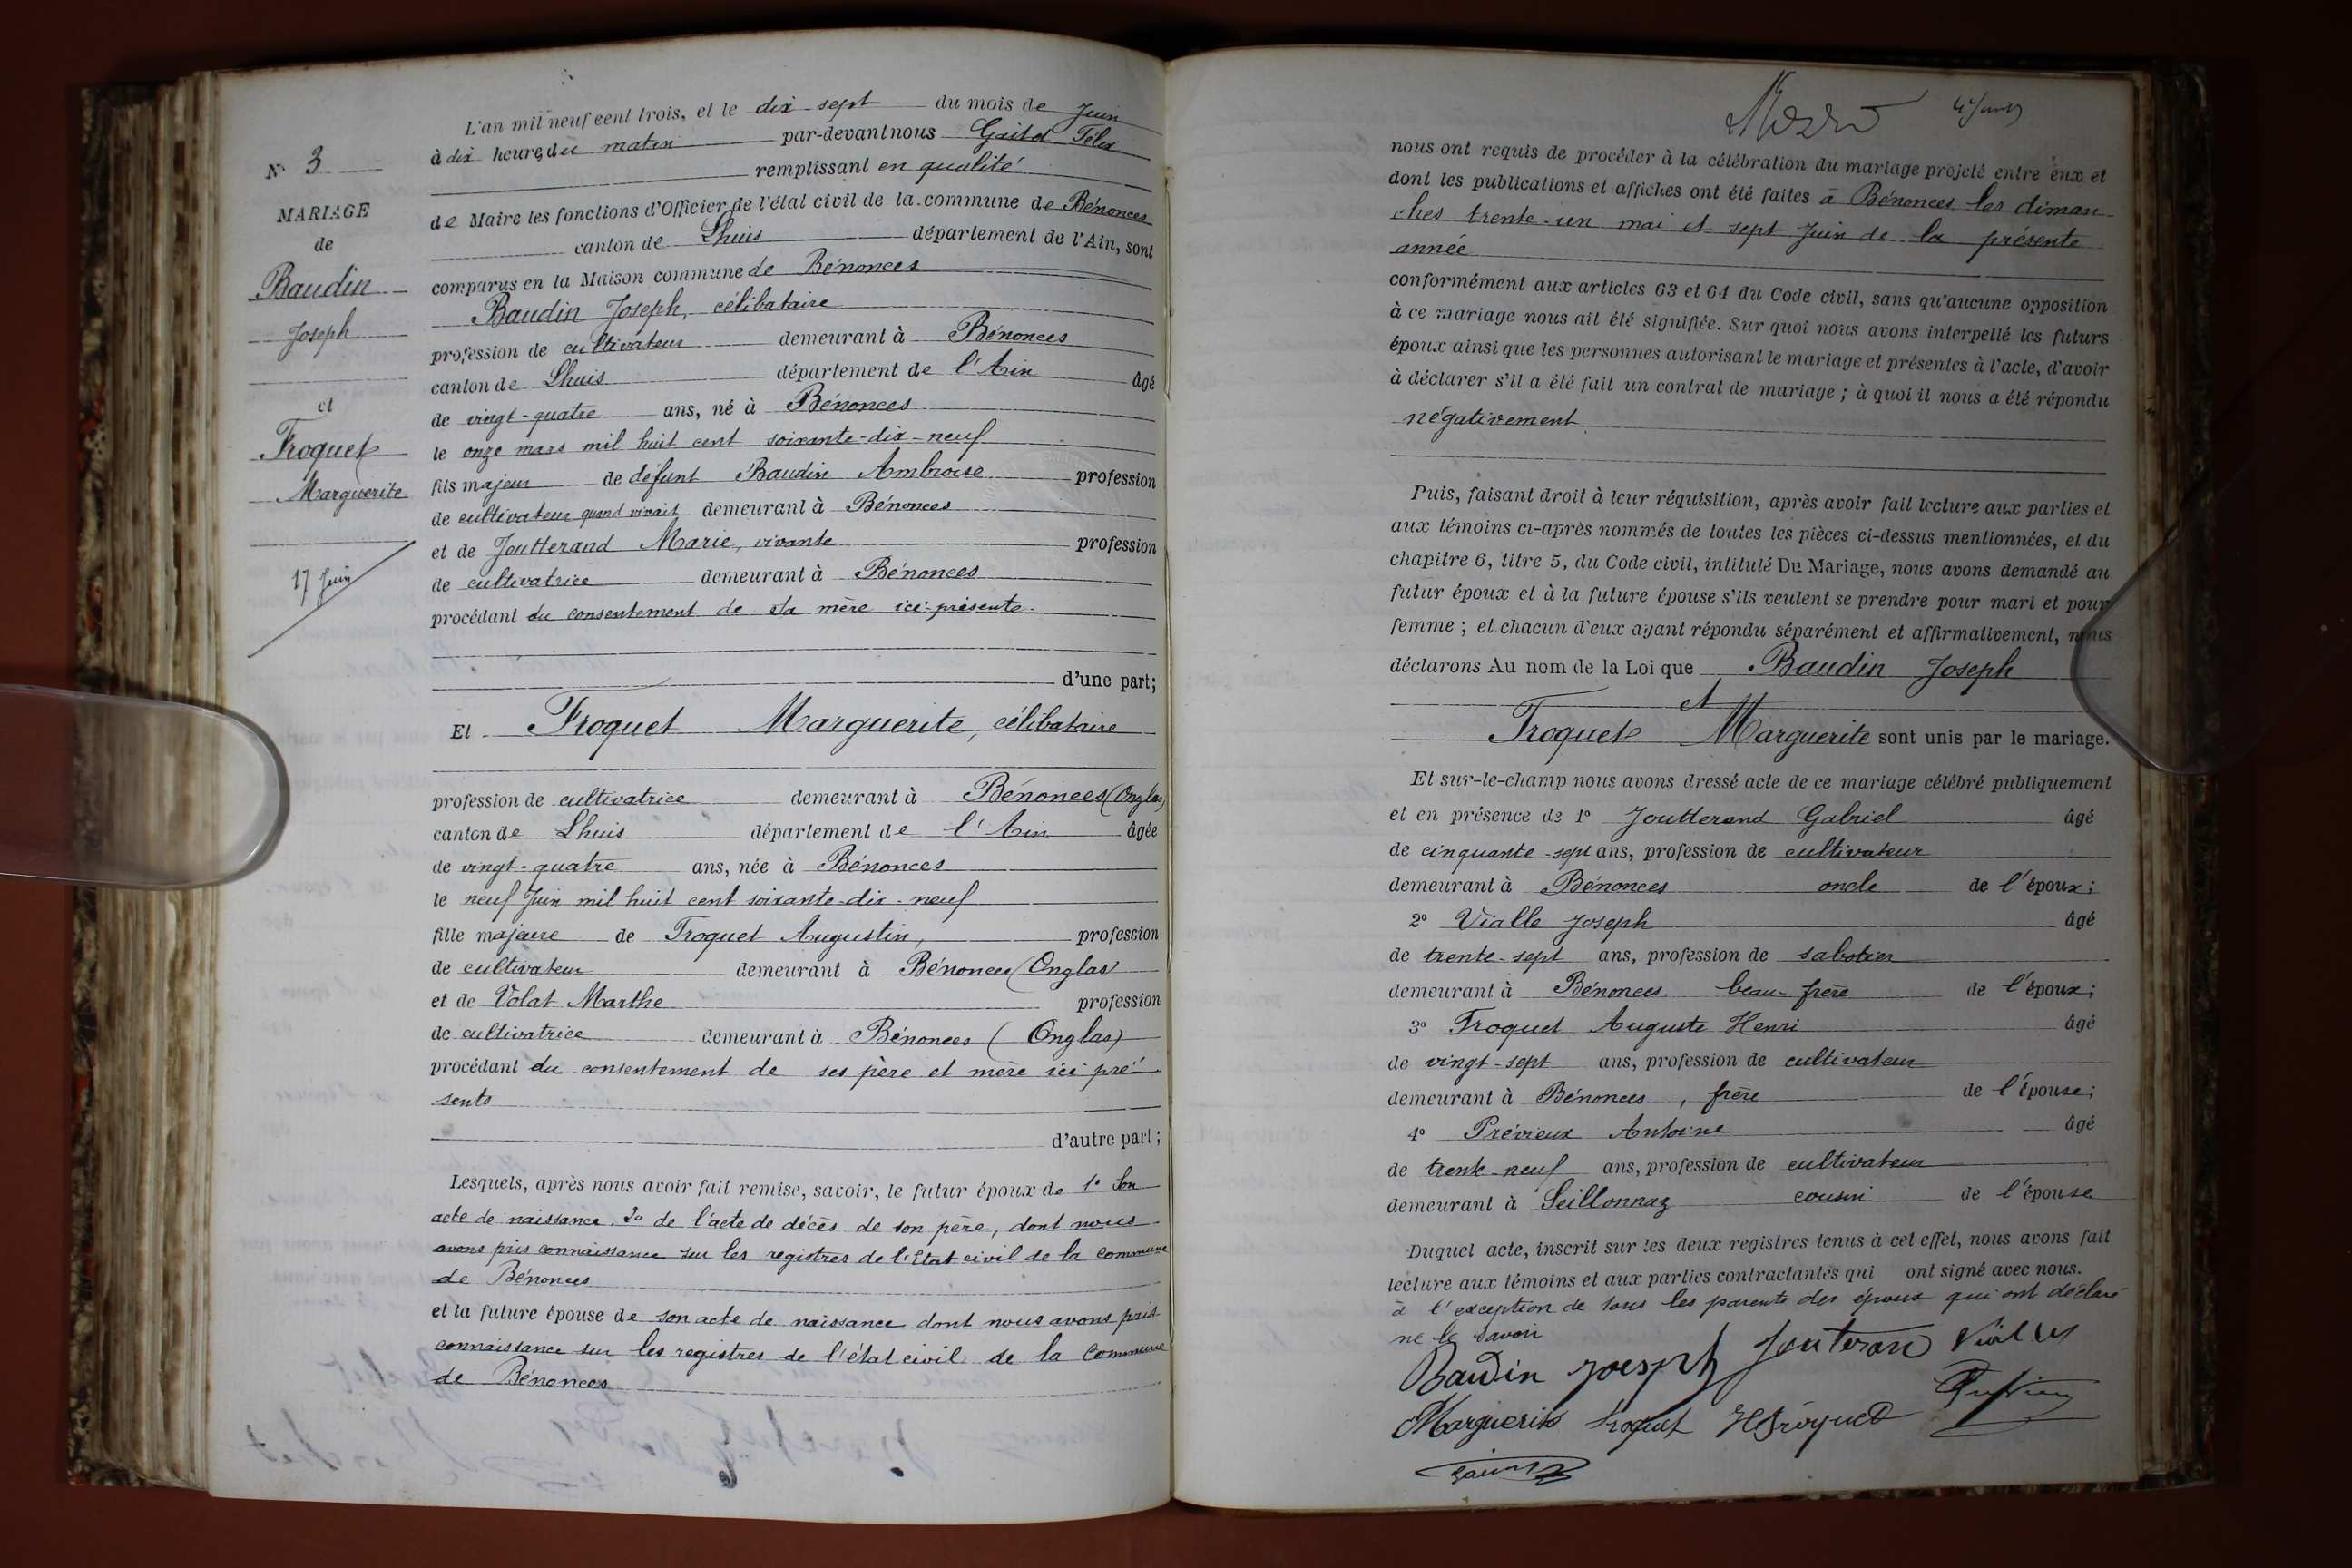 N° 3
MARIAGE
de
Baudin
Joseph
et
Troquet
Marguerite
17 Juin
L'an mil neuf cent trois, et le dix-sept du mois de Juin
à dix heures du matin par-devant nous Félix
remplissant en qualité
de Maire les fonctions d'Officier de l'état civil de la commune de Bénonces
canton de Lhuis département de l'Ain, sont
comparus en la Maison commune de Bénonces
Baudin Joseph, célibataire
profession de cultivateur demeurant à Bénonces
canton de Lhuis département de l'Ain âgé
de vingt-quatre ans, né à Bénonces
le onze mars mil huit cent soixante-dix-neuf
fils majeur de défunt Baudin Ambroise profession
de cultivateur quand vivait demeurant à Bénonces
et de Joutterand Marie, vivante profession
de cultivatrice demeurant à Bénonces
procédant du consentement de sa mère ici-présente.
d'une part;
Et Troquet Marguerite, célibataire
profession de cultivatrice demeurant à Bénonces (Onglas)
canton de Lhuis département de l'Ain âgée
de vingt-quatre ans, née à Bénonces
le neuf Juin mil huit cent soixante-dix-neuf
fille majeure de Troquet Augustin, profession
de cultivateur demeurant à Bénonces (Onglas)
et de Volat Marthe profession
de cultivatrice demeurant à Bénonces (Onglas)
procédant du consentement de ses père et mère ici pré-
sents
d'autre part;
Lesquels, après nous avoir fait remise, savoir, le futur époux de 1° Son
acte de naissance. 2° de l'acte de décès de son père, dont nous
avons pris connaissance sur les registres de l'Etat civil de la commune
de Bénonces
et la future épouse de son acte de naissance dont nous avons pris
connaissance sur les registres de l'état civil de la Commune
de Bénonces
nous ont requis de procéder à la célébration du mariage projeté entre eux et
dont les publications et affiches ont été faites à Bénonces les diman-
ches trente-un mai et sept Juin de la présente
année
conformément aux articles 63 et 64 du Code civil, sans qu'aucune opposition
à ce mariage nous ait été signifiée. Sur quoi nous avons interpellé les futurs
époux ainsi que les personnes autorisant le mariage et présentes à l'acte, d'avoir
à déclarer s'il a été fait un contrat de mariage ; à quoi il nous a été répondu
négativement
Puis, faisant droit à leur réquisition, après avoir fait lecture aux parties et
aux témoins ci-après nommés de toutes les pièces ci-dessus mentionnées, et du
chapitre 6, titre 5, du Code civil, intitulé Du Mariage, nous avons demandé au
futur époux et à la future épouse s'ils veulent se prendre pour mari et pour
femme ; et chacun d'eux ayant répondu séparément et affirmativement, nous
déclarons Au nom de la Loi que Baudin Joseph
et
Troquet Marguerite sont unis par le mariage.
Et sur-le-champ nous avons dressé acte de ce mariage célébré publiquement
et en présence de 1° Joutterand Gabriel âgé
de cinquante-sept ans, profession de cultivateur
demeurant à Bénonces oncle de l'époux ;
2° Vialle Joseph âgé
de trente-sept ans, profession de sabotier
demeurant à Bénonces. beau-frère de l'époux ;
3° Troquet Auguste Henri âgé
de vingt-sept ans, profession de cultivateur
demeurant à Bénonces, frère de l'épouse ;
4° Prévieux Antoine âgé
de trente-neuf ans, profession de cultivateur
demeurant à Seillonnaz cousin de l'épouse
Duquel acte, inscrit sur les deux registres tenus à cet effet, nous avons fait
lecture aux témoins et aux parties contractantes qui ont signé avec nous.
à l'exception de tous les parents des époux qui ont déclaré
ne le savoir
Baudin Joesph Jouteran
Marguerite Troquet H Troquet